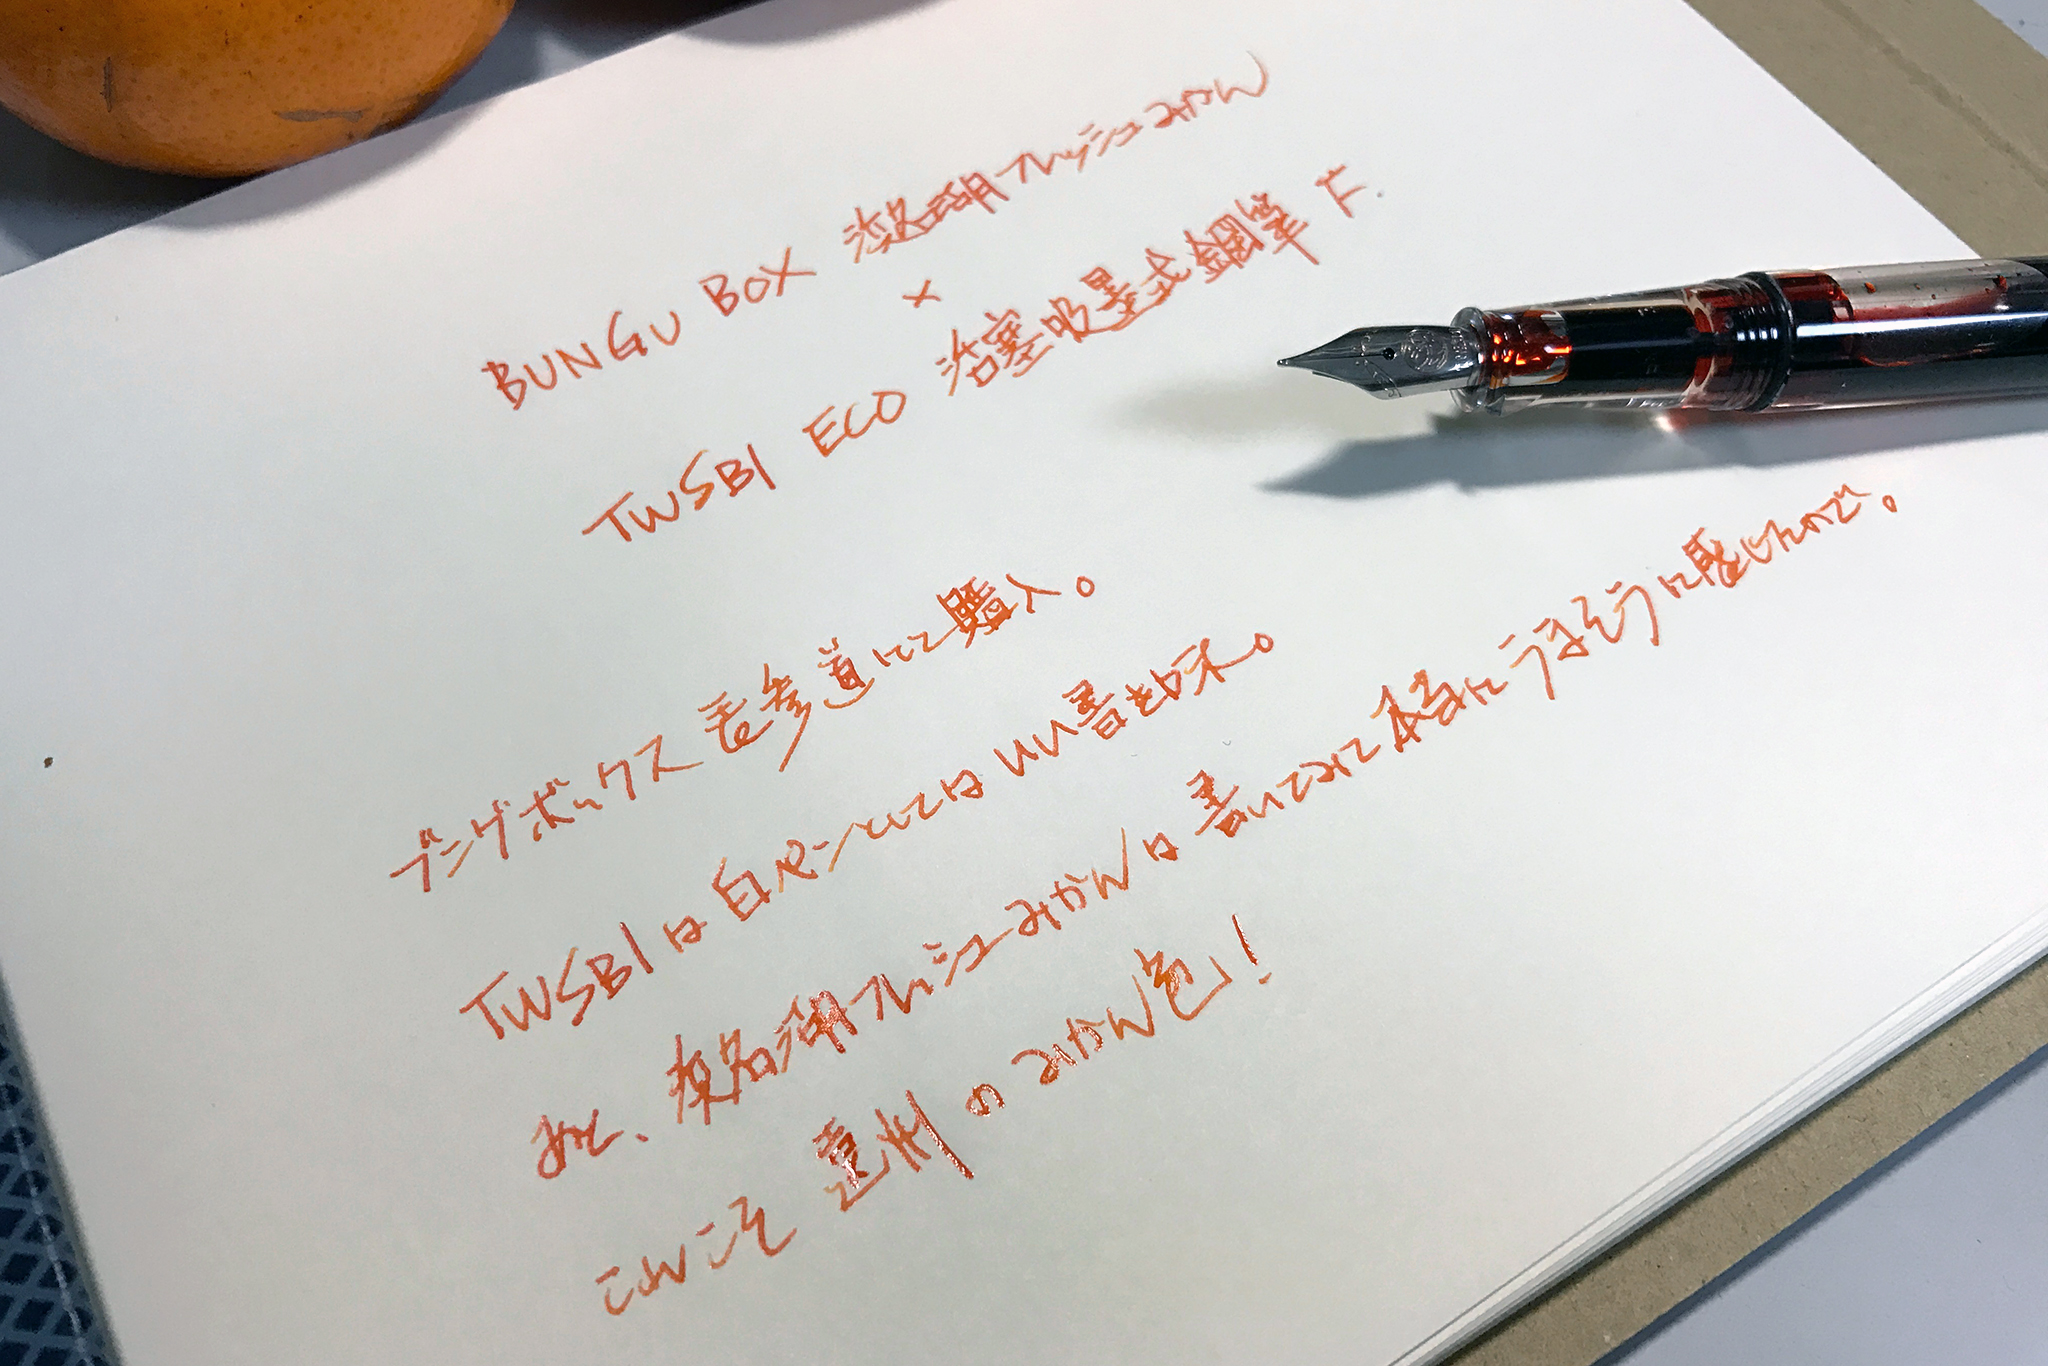 BUNGU BOX 濱名湖フレッシュみかん
×
TWSBI ECO 活塞吸墨式鋼筆 F.
ブングボックス 表参道にて購入。
TWSBIは白ペンとしてはいい書き味。
あと、濱名湖フレッシュみかんは書いてみて本当にうまそうに感じたので。
これこそ 遠州のみかん色!